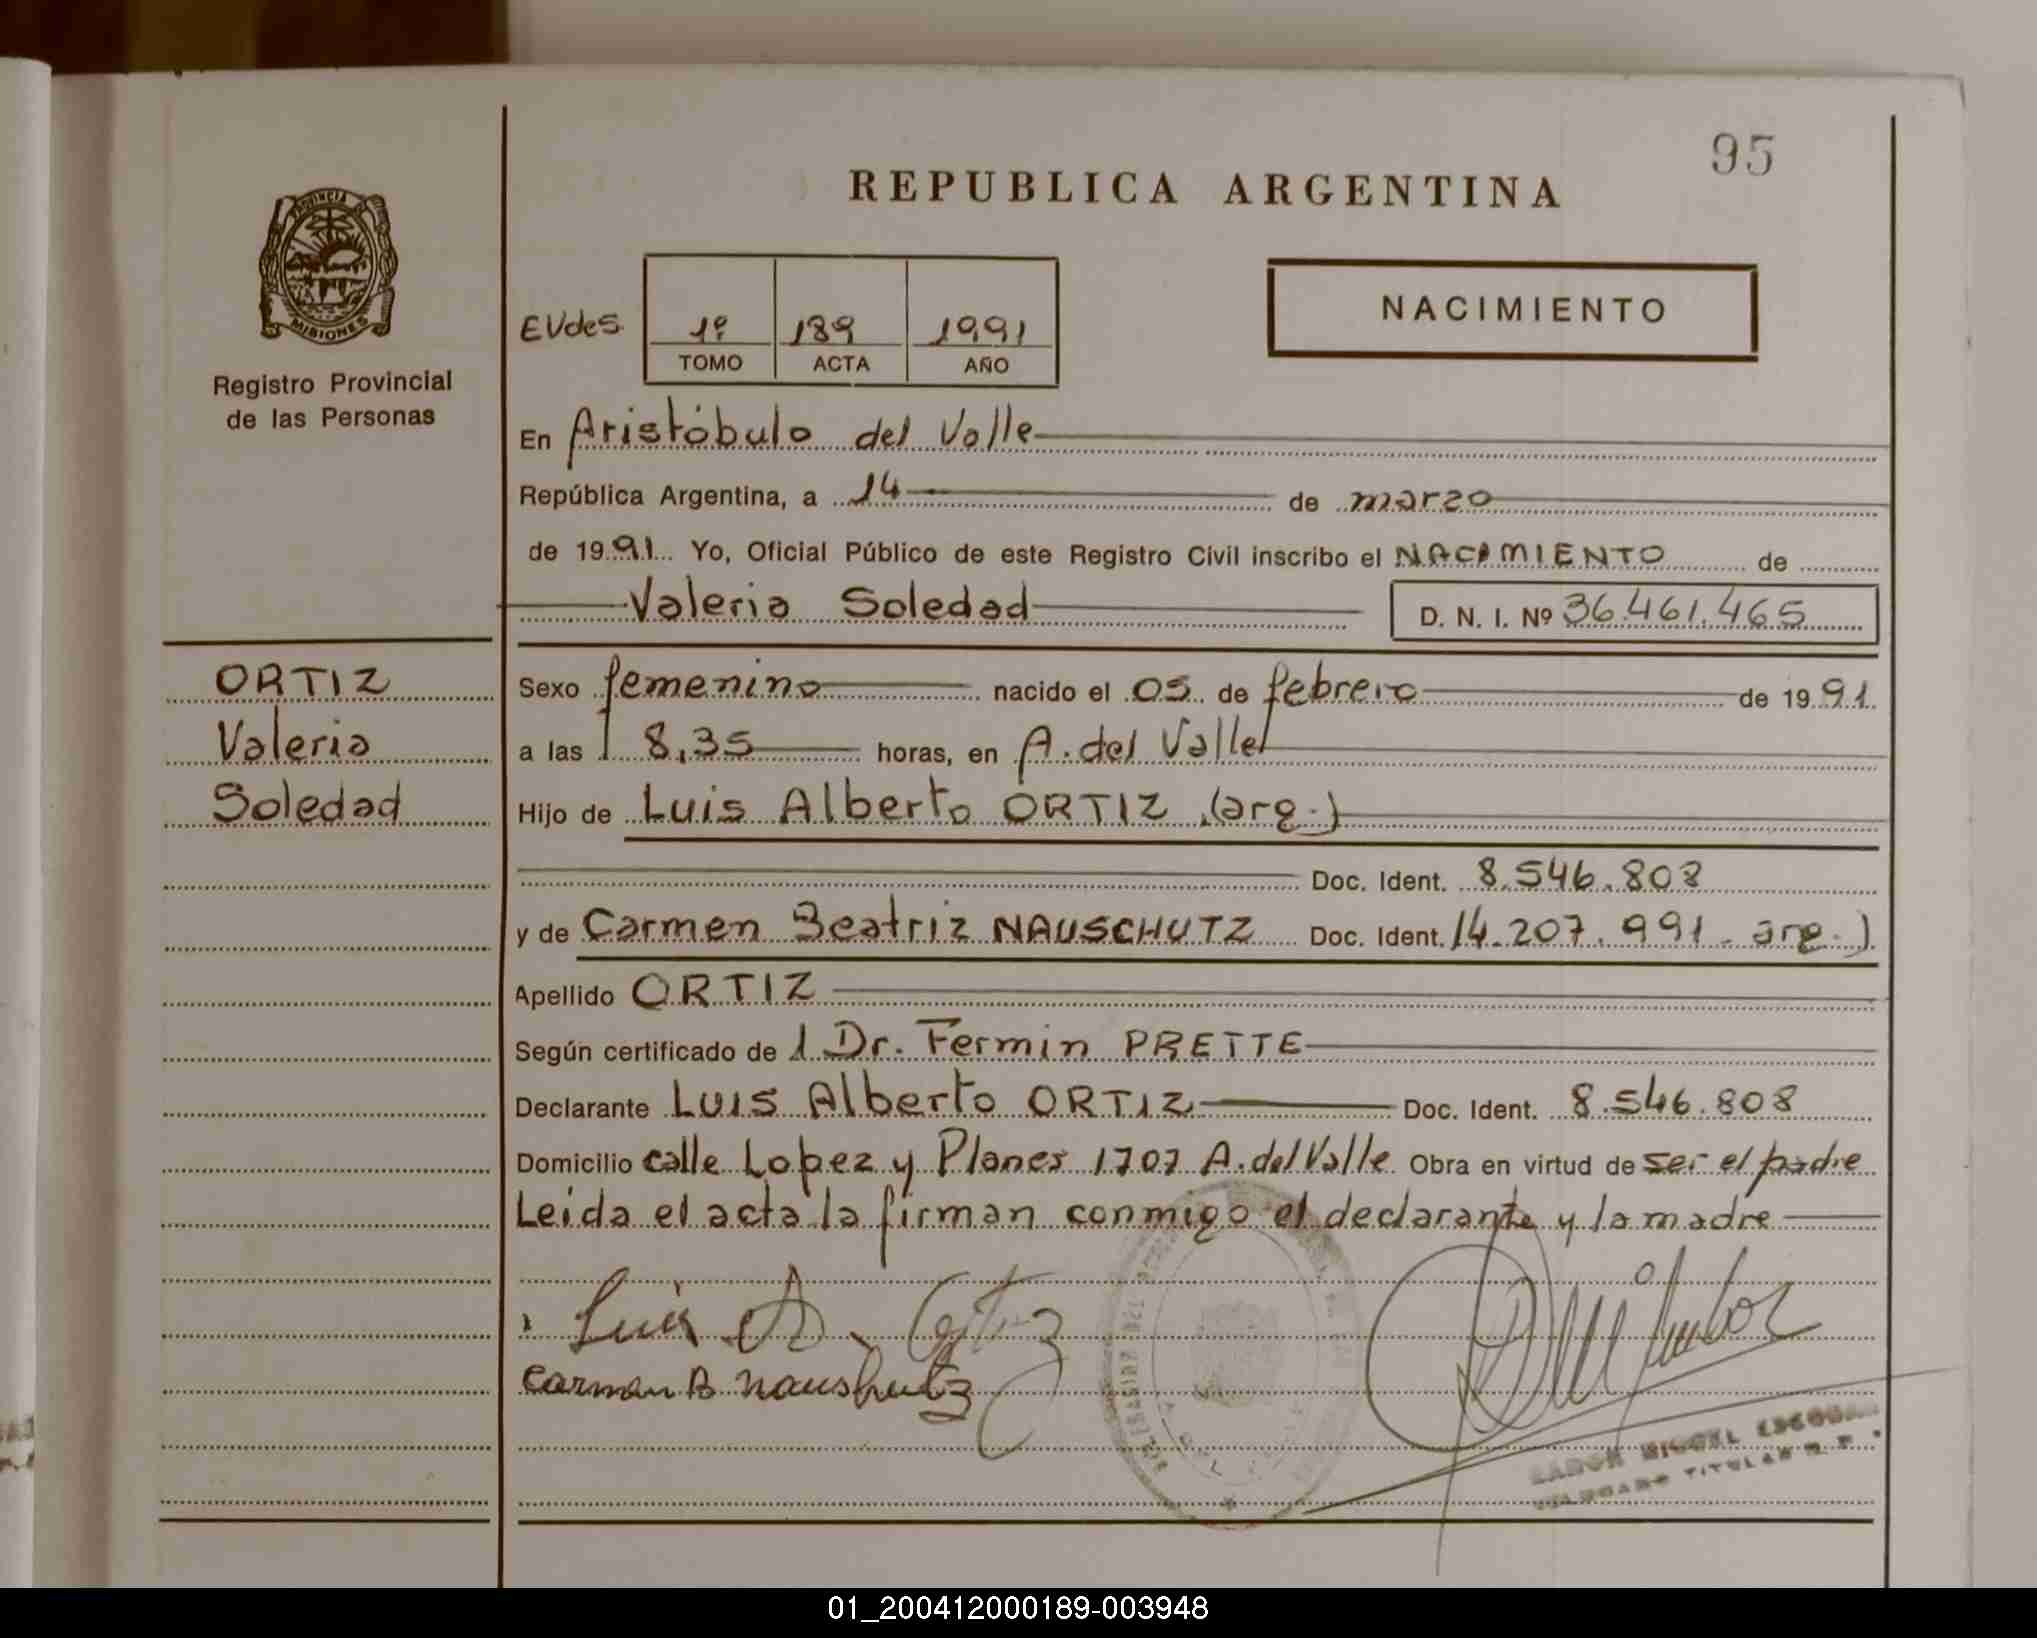 95
REPUBLICA ARGENTINA
PROVINCIA DE
MISIONES
Registro Provincial
de las Personas
NACIMIENTO
EVdes. 1º 189 1991
TOMO ACTA AÑO
En Aristóbulo del Valle
República Argentina, a 14 de marzo
de 1991 Yo, Oficial Público de este Registro Civil inscribo el NACIMIENTO de
Valeria Soledad D. N. I. Nº 36.461.465
ORTIZ
Valeria
Soledad
Sexo femenino nacido el 05 de febrero de 1991
a las 8,35 horas, en A. del Valle
Hijo de Luis Alberto ORTIZ (arg.)
Doc. Ident. 8.546.808
y de Carmen Beatriz NAUSCHUTZ Doc. Ident. 14.207.991. arg.)
Apellido ORTIZ
Según certificado de l Dr. Fermin PRETTE
Declarante Luis Alberto ORTIZ Doc. Ident. 8.546.808
Domicilio calle Lopez y Planes 1707 A. del Valle Obra en virtud de ser el padre
Leida el acta la firman conmigo el declarante y la madre
Luis A. Ortiz
Carman B Naushutz
MIGUEL ESCOBAR
TITULAR
01_200412000189-003948